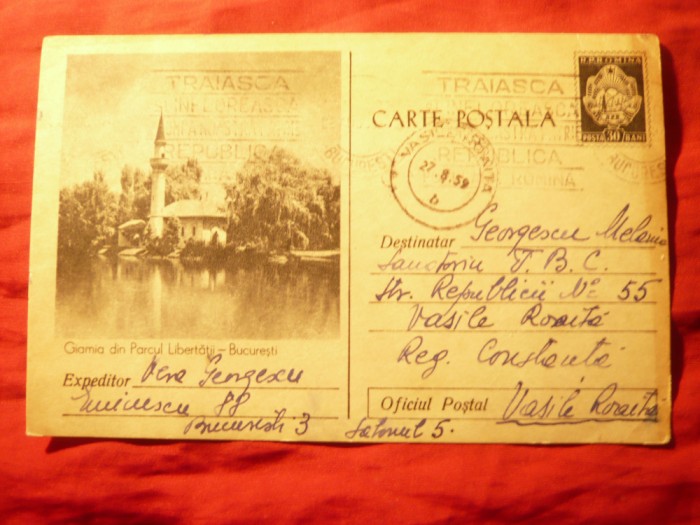 TRAIASCA
INFLOREASCA
REPUBLICA
Giamia din Parcul Libertății – București
Expeditor Vera Georgescu
Eminescu 88
Bucuresti 3
CARTE POȘTALĂ
R.P. ROMINA
POSTA 30 BANI
TRAIASCA
REPUBLICA
ROMINA
BUCUREȘTI
VASILE ROAITA
27.8.59
b
Deștinatar Georgescu Melania
Sanatoriu T.B.C.
Str. Republicii No 55
Vasile Roaită
Reg. Constanță
Oficiul Poștal Vasile Roaită
Salonul 5.